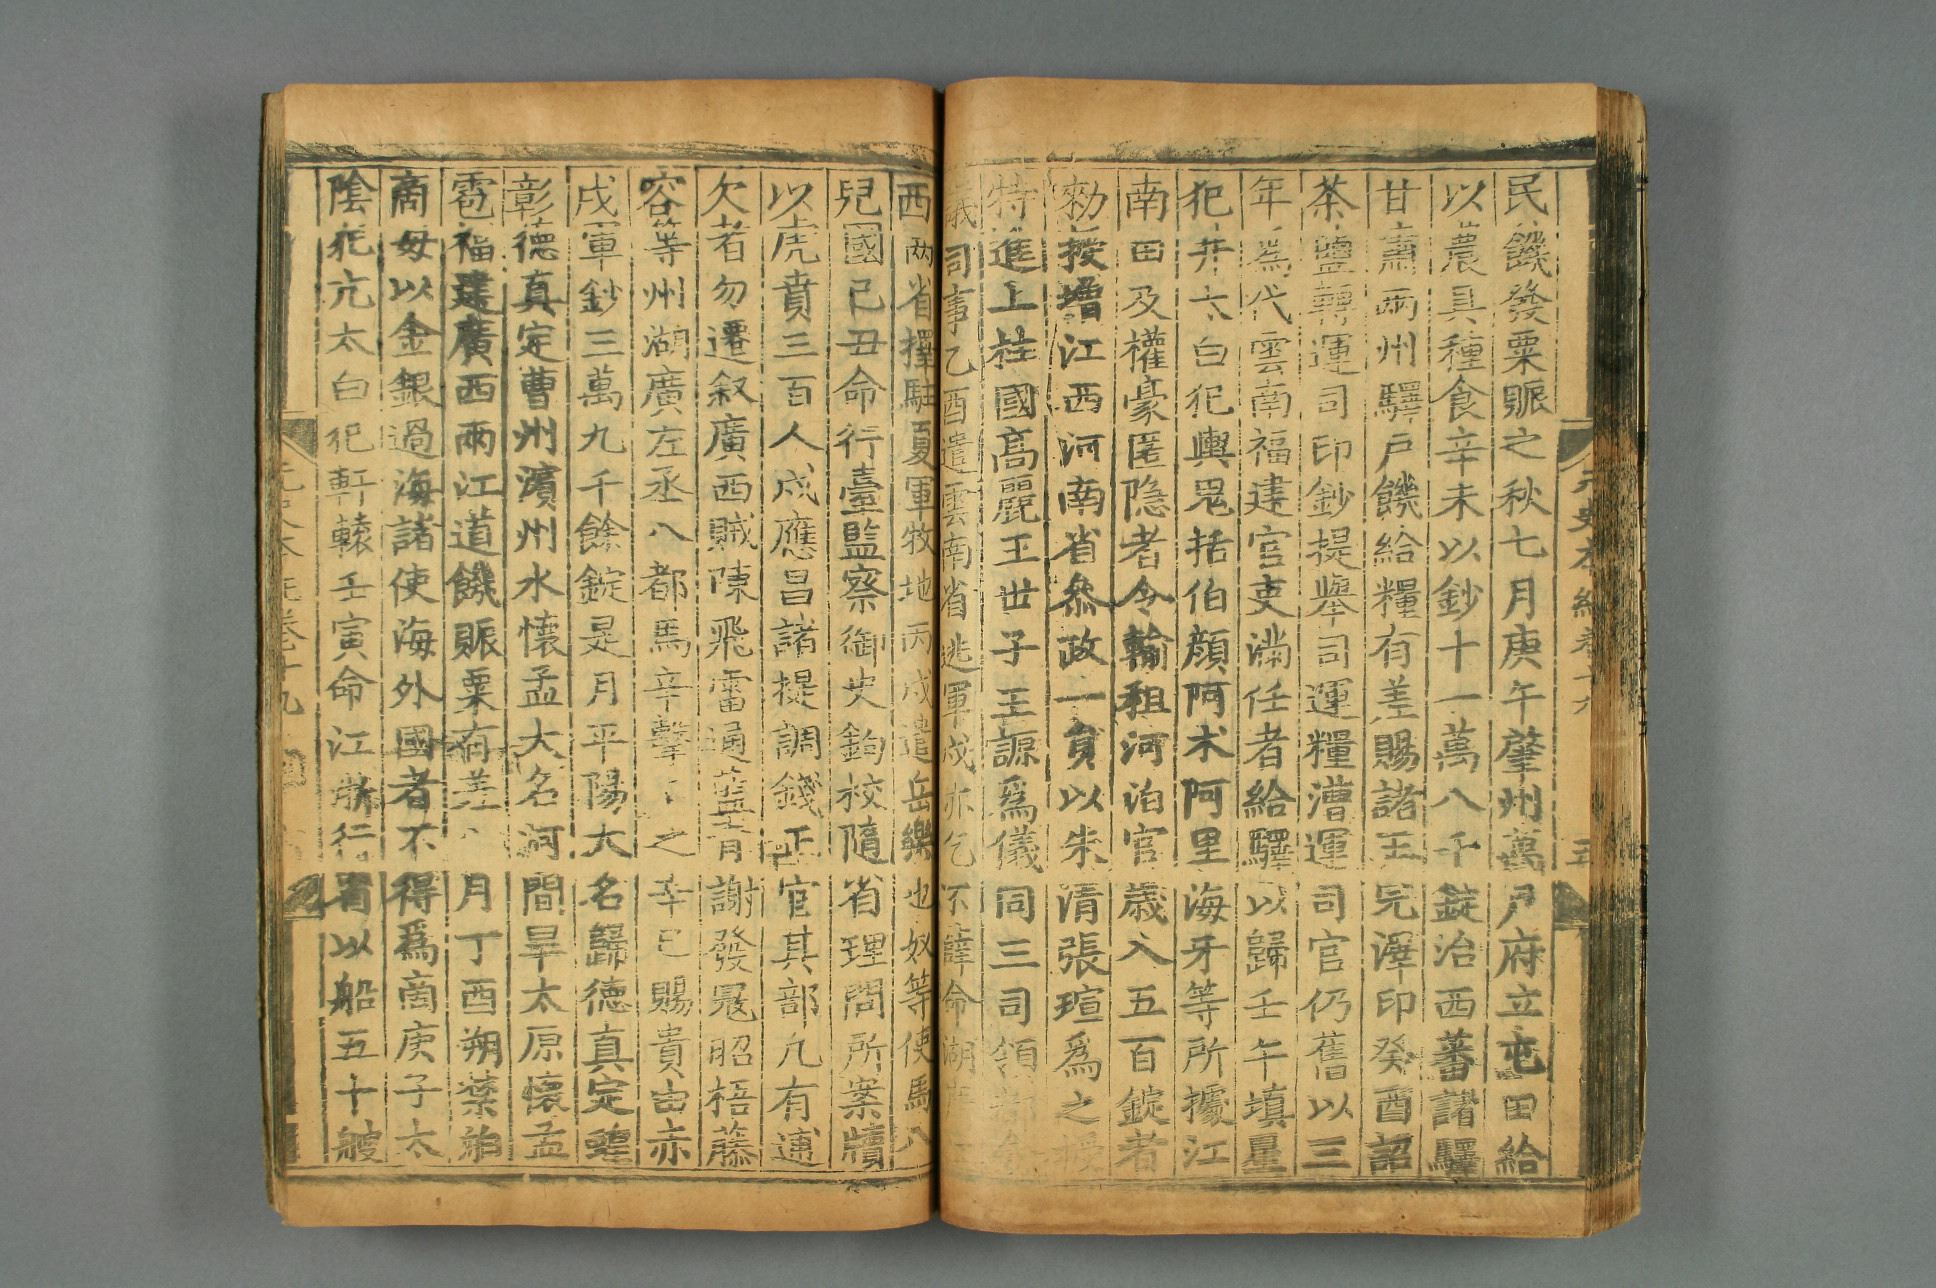 民饑發粟賑之秋七月庚午肇州萬戶府立屯田給
以農具種食辛未以鈔十一萬八千錠治西蕃諸驛
甘肅兩州驛戶饑給糧有差賜諸王完澤印癸酉詔
茶鹽轉運司印鈔提舉司運糧漕運司官仍舊以三
年爲代雲南福建官吏滿任者給驛以歸壬午塡星
犯井太白犯輿鬼括伯顏阿朮阿里海牙等所據江
南田及權豪匿隐者令輸租河泊官歲入五百錠者
勑授增江西河南省叅政一員以朱清張瑄爲之授
特進上柱國高麗王世子王謜爲儀同三司領都僉
議司事乙酉遣雲南省逃軍戍亦乞不薛命湖廣江
西兩省擇駐夏軍牧地丙戍遣岳樂也奴等使馬八
兒國己丑命行臺監察御史鉤校隨省理問所案牘
以虎賁三百人戍應昌諸提調錢正官其部凢有逋
欠者勿遷叙廣西賊陳飛雷通藍青謝發冦昭梧藤
容等州湖廣左丞八都馬辛擊 之辛巳賜貴由赤
戍軍鈔三萬九千餘錠是月平陽大名歸德真定蝗
彰德真定曹州濱州水懷孟大名河間旱太原懷孟
雹福建廣西兩江道饑賑粟有差八月丁酉朔禁舶
商毋以金銀過海諸使海外國者不得爲商庚子太
陰犯亢太白犯軒轅壬寅命江浙行省以船五十艘
元史本紀卷十九